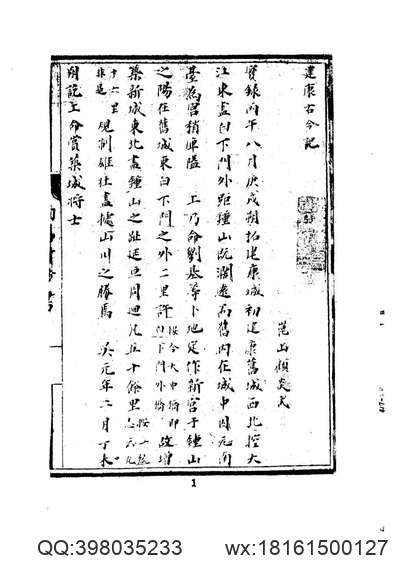 建康古今記
崑山顧炎武
實錄丙午八月庚戌朔拓建康城初建康舊城西北控大
江東盡白下門外距鍾山既闊遠而舊內在城中因元南
臺為宮稍庳隘 上乃命劉基等卜地定作新宮于鍾山
之陽在舊城東白下門之外二里許 按今大中橋即白下門外橋 故增
築新城東北盡鍾山之趾延亘周迴凡五十餘里 按一統志云九
十六里非是 規制雄壯盡據山川之勝焉 吳元年二月丁未
上命賞築城將士
1
QQ:398035233 wx:18161500127